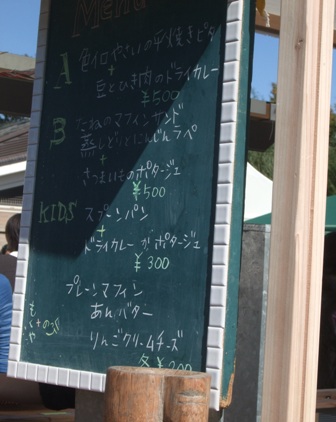 Menu
A 色イロやさいの平焼きピタ
+
豆とひき肉のドライカレー
¥500
B たねのマフィンサンド
蒸しどりとにんじんラペ
+
さつまいものポタージュ
¥500
KIDS スプーンパン
+
ドライカレーかポタージュ
¥300
プレーンマフィン
あんバター
りんごクリームチーズ
各¥200